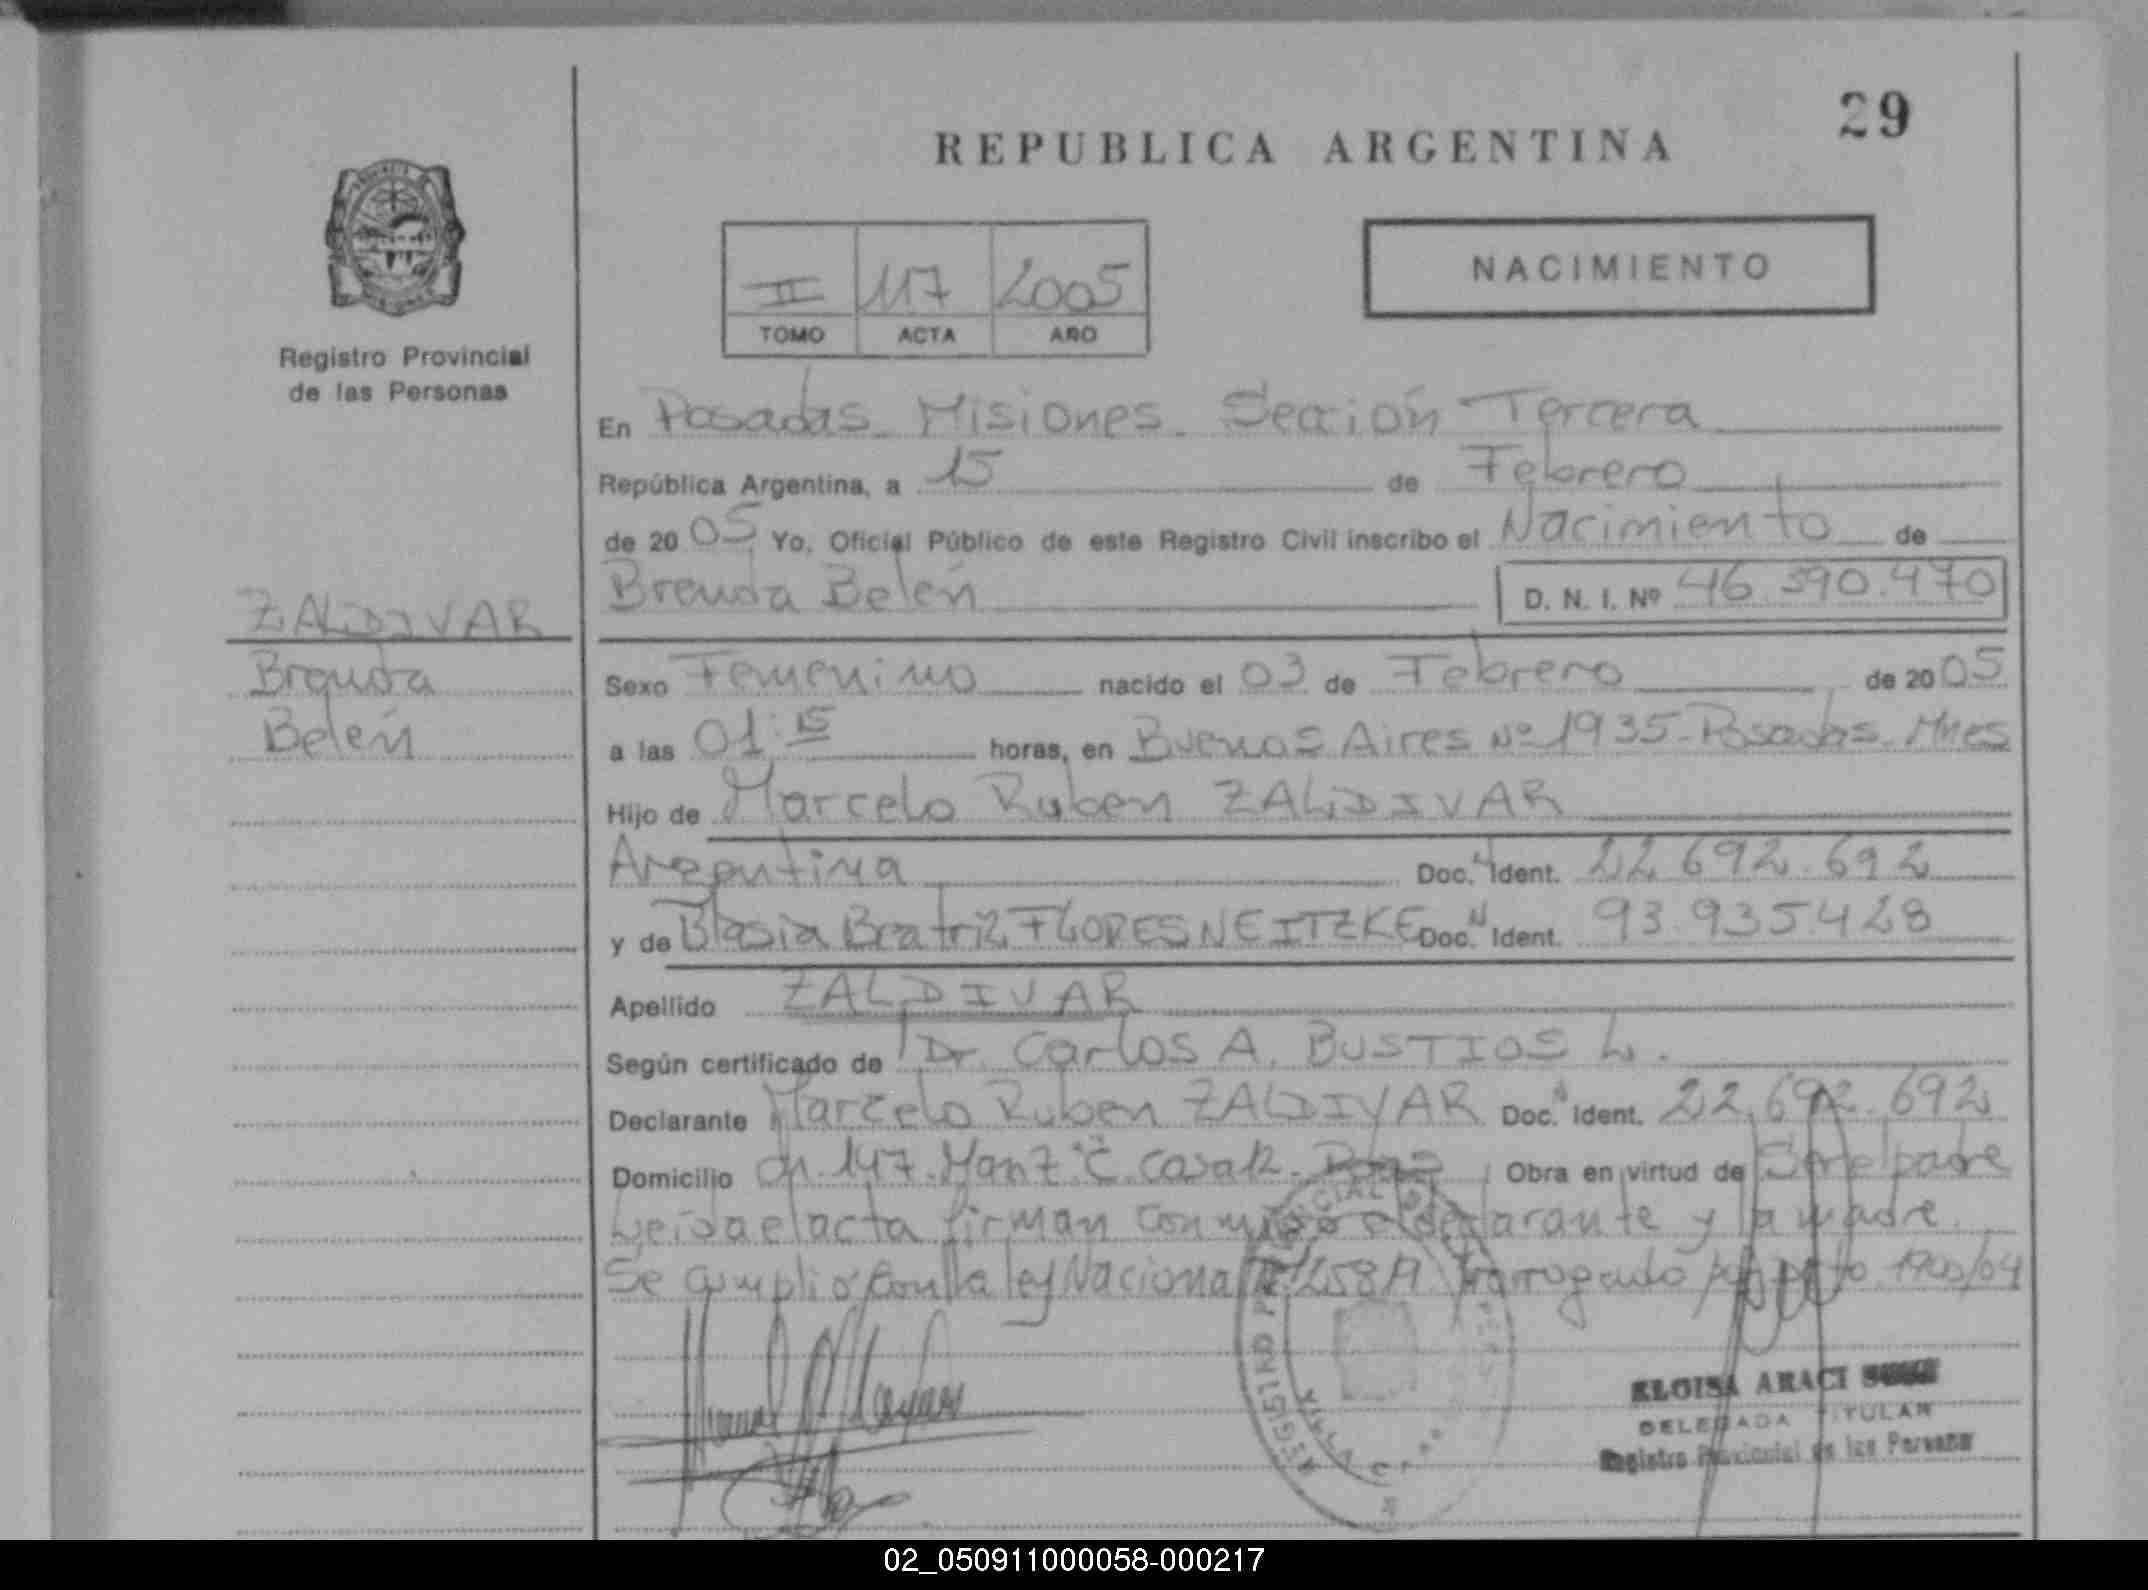 29
REPUBLICA ARGENTINA
NACIMIENTO
II 117 2005
TOMO ACTA AÑO
Registro Provincial
de las Personas
En Posadas Misiones Sección Tercera
República Argentina, a 15 de Febrero
de 2005 Yo, Oficial Público de este Registro Civil inscribo el Nacimiento de
Brenda Belén D. N. I. Nº 46.390.470
ZALDIVAR
Brenda
Belén
Sexo Femenino nacido el 03 de Febrero de 2005
a las 01:15 horas, en Buenos Aires Nº 1935 - Posadas - Mnes
Hijo de Marcelo Ruben ZALDIVAR
Argentina Doc. Ident. 22.692.692
y de Blasia Beatriz FLORES NEITZKE Doc. Ident. 93.935.428
Apellido ZALDIVAR
Según certificado de Dr. Carlos A. BUSTIOS L.
Declarante Marcelo Ruben ZALDIVAR Doc. Ident. 22.692.692
Domicilio Ch. 147. Manz "C" casa 12. Obra en virtud de Ser el padre
Leída el acta firman conmigo el declarante y la madre.
Se cumplio con la ley Nacional prorrogado 1900/04
REGISTRO PROVINCIAL DE
VILLA
ELOISA ARACI
DELEGADA TITULAR
Registro Provincial de las Personas
02_050911000058-000217